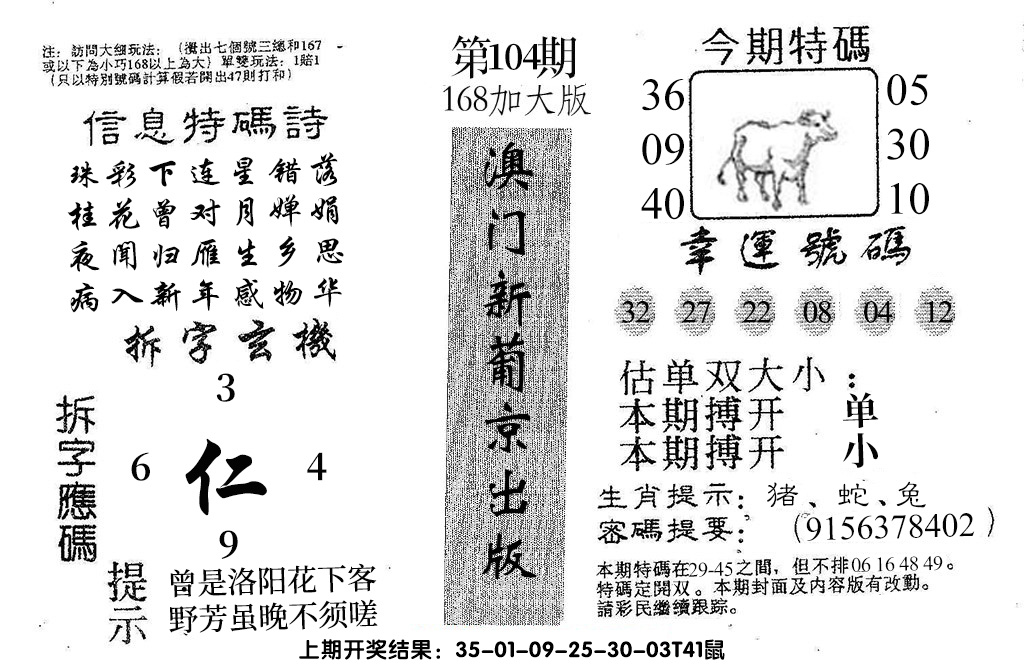 注：訪問大细玩法：（攪出七個號三總和167
或以下為小巧168以上為大）單雙玩法：1賠1
（只以特別號碼計算假若開出47則打和）
信息特碼詩
珠彩下连星错落
桂花曾对月婵娟
夜闻归雁生乡思
病入新年感物华
拆字玄機
3
拆字應碼
6 仁 4
9
提示
曾是洛阳花下客
野芳虽晚不须嗟
第104期
168加大版
澳门新葡京出版
今期特碼
36 05
09 30
40 10
幸運號碼
32 27 22 08 04 12
估单双大小：
本期搏开 单
本期搏开 小
生肖提示：猪、蛇、兔
密碼提要：（9156378402）
本期特碼在29-45之間，但不排06 16 48 49。
特碼定開双。本期封面及内容版有改動。
請彩民繼續跟踪。
上期开奖结果：35-01-09-25-30-03T41鼠